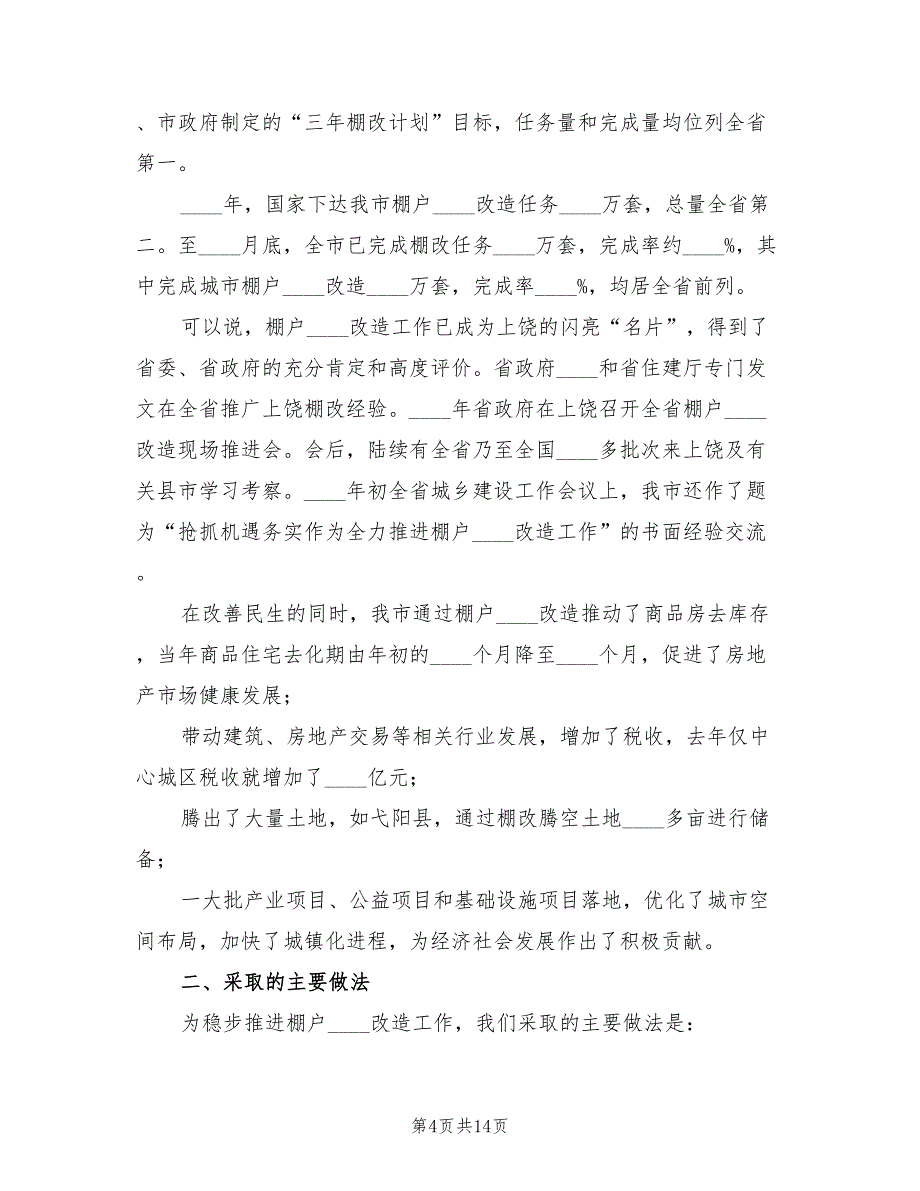 、市政府制定的“三年棚改计划”目标，任务量和完成量均位列全省
第一。
____年，国家下达我市棚户____改造任务____万套，总量全省第
二。至____月底，全市已完成棚改任务____万套，完成率约____%，其
中完成城市棚户____改造____万套，完成率____%，均居全省前列。
可以说，棚户____改造工作已成为上饶的闪亮“名片”，得到了
省委、省政府的充分肯定和高度评价。省政府____和省住建厅专门发
文在全省推广上饶棚改经验。____年省政府在上饶召开全省棚户____
改造现场推进会。会后，陆续有全省乃至全国____多批次来上饶及有
关县市学习考察。____年初全省城乡建设工作会议上，我市还作了题
为“抢抓机遇务实作为全力推进棚户____改造工作”的书面经验交流
。
在改善民生的同时，我市通过棚户____改造推动了商品房去库存
，当年商品住宅去化期由年初的____个月降至____个月，促进了房地
产市场健康发展；
带动建筑、房地产交易等相关行业发展，增加了税收，去年仅中
心城区税收就增加了____亿元；
腾出了大量土地，如弋阳县，通过棚改腾空土地____多亩进行储
备；
一大批产业项目、公益项目和基础设施项目落地，优化了城市空
间布局，加快了城镇化进程，为经济社会发展作出了积极贡献。
二、采取的主要做法
为稳步推进棚户____改造工作，我们采取的主要做法是：
第4页共14页